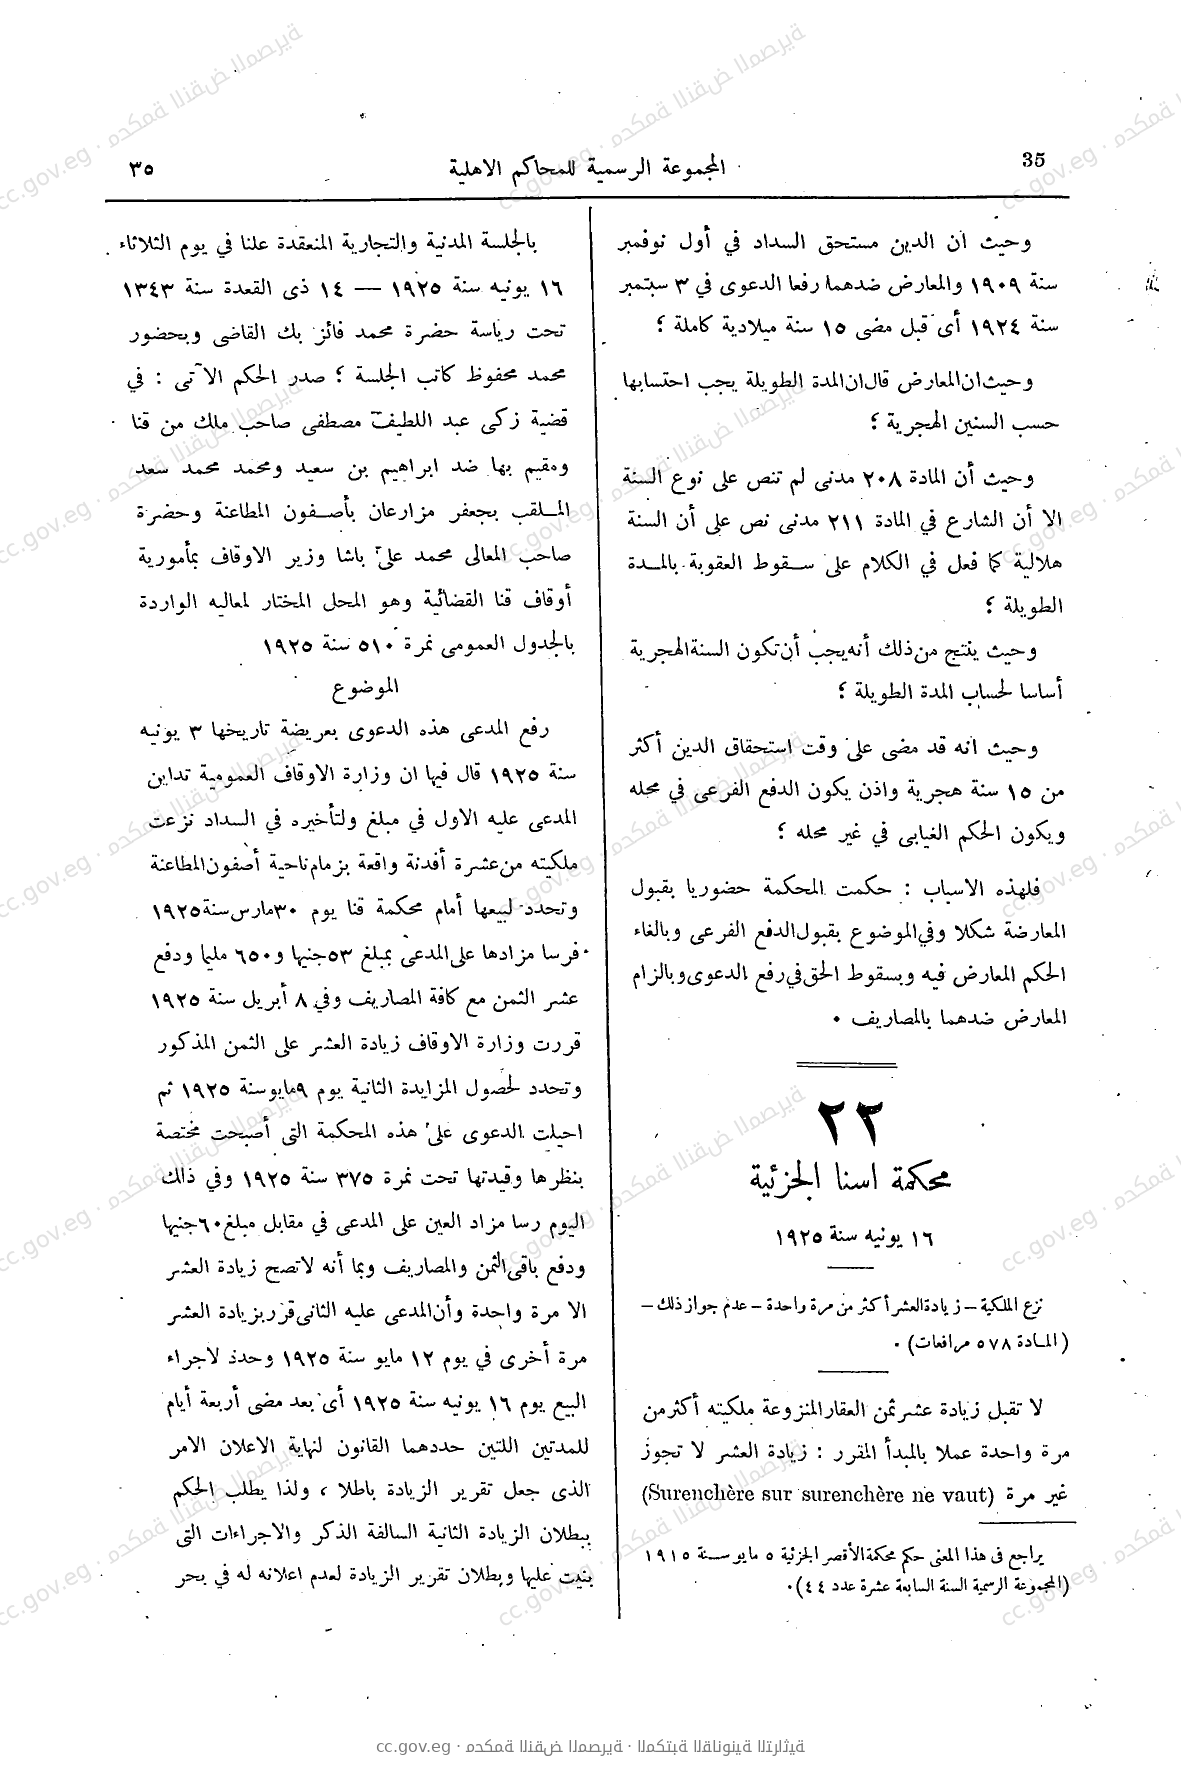 35
المجموعة الرسمية للمحاكم الاهلية
٣٥
وحيث ان الدين مستحق السداد في أول نوفمبر
سنة ١٩٠٩ والمعارض ضدهما رفعا الدعوى في ٣ سبتمبر
سنة ١٩٢٤ أى قبل مضى ١٥ سنة ميلادية كاملة ؛
وحيث ان المعارض قال ان المدة الطويلة يجب احتسابها
حسب السنين الهجرية ؛
وحيث أن المادة ٢٠٨ مدنى لم تنص على نوع السنة
الا أن الشارع في المادة ٢١١ مدنى نص على أن السنة
هلالية كما فعل في الكلام على سقوط العقوبة بالمدة
الطويلة ؛
وحيث ينتج من ذلك أنه يجب أن تكون السنة الهجرية
أساسا لحساب المدة الطويلة ؛
وحيث انه قد مضى على وقت استحقاق الدين أكثر
من ١٥ سنة هجرية واذن يكون الدفع الفرعى في محله
ويكون الحكم الغيابى في غير محله ؛
فلهذه الاسباب : حكمت المحكمة حضوريا بقبول
المعارضة شكلا وفي الموضوع بقبول الدفع الفرعى وبالغاء
الحكم المعارض فيه وبسقوط الحق في رفع الدعوى وبالزام
المعارض ضدهما بالمصاريف .
٢٢
محكمة اسنا الجزئية
١٦ يونيه سنة ١٩٢٥
نزع الملكية – زيادة العشر أكثر من مرة واحدة – عدم جواز ذلك –
(المادة ٥٧٨ مرافعات) .
لا تقبل زيادة عشر ثمن العقار المنزوعة ملكيته أكثر من
مرة واحدة عملا بالمبدأ المقرر : زيادة العشر لا تجوز
غير مرة (Surenchère sur surenchère ne vaut)
يراجع فى هذا المعنى حكم محكمة الأقصر الجزئية ٥ مايو سنة ١٩١٥
(المجموعة الرسمية السنة السابعة عشرة عدد ٤٤) .
بالجلسة المدنية والتجارية المنعقدة علنا في يوم الثلاثاء
١٦ يونيه سنة ١٩٢٥ — ١٤ ذى القعدة سنة ١٣٤٣
تحت رياسة حضرة محمد فائز بك القاضى وبحضور
محمد محفوظ كاتب الجلسة ؛ صدر الحكم الآتى : في
قضية زكى عبد اللطيف مصطفى صاحب ملك من قنا
ومقيم بها ضد ابراهيم بن سعيد ومحمد محمد سعد
الملقب بجعفر مزارعان بأصفون المطاعنة وحضرة
صاحب المعالى محمد على باشا وزير الاوقاف بمأمورية
أوقاف قنا القضائية وهو المحل المختار لمعاليه الواردة
بالجدول العمومى نمرة ٥١٠ سنة ١٩٢٥
الموضوع
رفع المدعى هذه الدعوى بعريضة تاريخها ٣ يونيه
سنة ١٩٢٥ قال فيها ان وزارة الاوقاف العمومية تداين
المدعى عليه الاول في مبلغ ولتأخيره في السداد نزعت
ملكيته من عشرة أفدنة واقعة بزمام ناحية أصفون المطاعنة
وتحدد لبيعها أمام محكمة قنا يوم ٣٠ مارس سنة ١٩٢٥
فرسا مزادها على المدعى بمبلغ ٥٣ جنيها و ٦٥٠ مليا ودفع
عشر الثمن مع كافة المصاريف وفي ٨ أبريل سنة ١٩٢٥
قررت وزارة الاوقاف زيادة العشر على الثمن المذكور
وتحدد لحصول المزايدة الثانية يوم ٩ مايو سنة ١٩٢٥ ثم
احيلت الدعوى على هذه المحكمة التى أصبحت مختصة
بنظرها وقيدتها تحت نمرة ٣٧٥ سنة ١٩٢٥ وفي ذلك
اليوم رسا مزاد العين على المدعى في مقابل مبلغ ٦٠ جنيها
ودفع باقى الثمن والمصاريف وبما أنه لا تصح زيادة العشر
الا مرة واحدة وأن المدعى عليه الثانى قرر بزيادة العشر
مرة أخرى في يوم ١٢ مايو سنة ١٩٢٥ وحدد لاجراء
البيع يوم ١٦ يونيه سنة ١٩٢٥ أى بعد مضى أربعة أيام
للمدتين اللتين حددهما القانون لنهاية الاعلان الامر
الذى جعل تقرير الزيادة باطلا ، ولذا يطلب الحكم
ببطلان الزيادة الثانية السالفة الذكر والاجراءات التى
بنيت عليها وبطلان تقرير الزيادة لعدم اعلانه له في بحر
cc.gov.eg · محكمة النقض المصرية · المكتبة القانونية التراثية